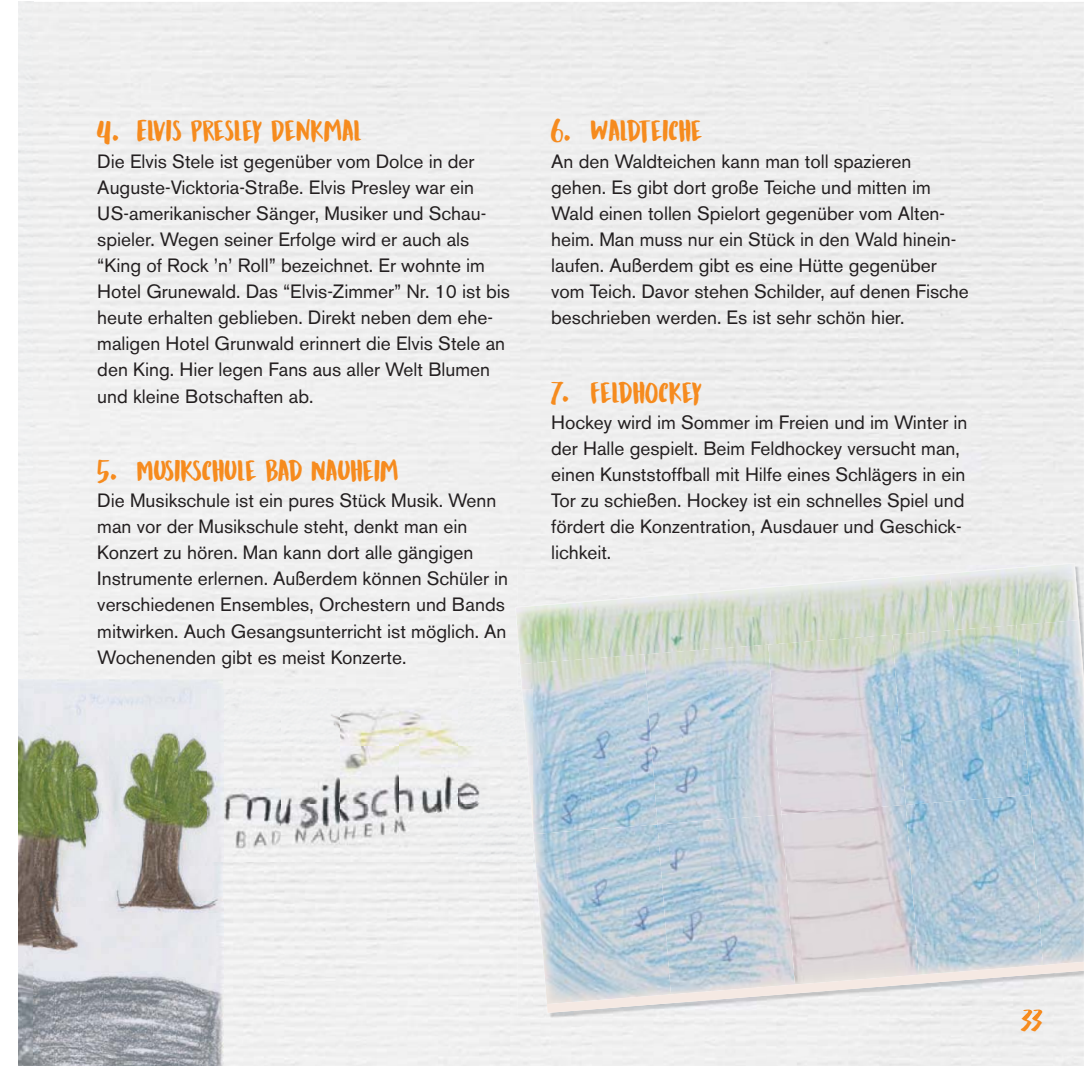 4. ELVIS PRESLEY DENKMAL
Die Elvis Stele ist gegenüber vom Dolce in der
Auguste-Vicktoria-Straße. Elvis Presley war ein
US-amerikanischer Sänger, Musiker und Schau-
spieler. Wegen seiner Erfolge wird er auch als
“King of Rock ’n’ Roll” bezeichnet. Er wohnte im
Hotel Grunewald. Das “Elvis-Zimmer” Nr. 10 ist bis
heute erhalten geblieben. Direkt neben dem ehe-
maligen Hotel Grunwald erinnert die Elvis Stele an
den King. Hier legen Fans aus aller Welt Blumen
und kleine Botschaften ab.
5. MUSIKSCHULE BAD NAUHEIM
Die Musikschule ist ein pures Stück Musik. Wenn
man vor der Musikschule steht, denkt man ein
Konzert zu hören. Man kann dort alle gängigen
Instrumente erlernen. Außerdem können Schüler in
verschiedenen Ensembles, Orchestern und Bands
mitwirken. Auch Gesangsunterricht ist möglich. An
Wochenenden gibt es meist Konzerte.
musikschule
BAD NAUHEIM
6. WALDTEICHE
An den Waldteichen kann man toll spazieren
gehen. Es gibt dort große Teiche und mitten im
Wald einen tollen Spielort gegenüber vom Alten-
heim. Man muss nur ein Stück in den Wald hinein-
laufen. Außerdem gibt es eine Hütte gegenüber
vom Teich. Davor stehen Schilder, auf denen Fische
beschrieben werden. Es ist sehr schön hier.
7. FELDHOCKEY
Hockey wird im Sommer im Freien und im Winter in
der Halle gespielt. Beim Feldhockey versucht man,
einen Kunststoffball mit Hilfe eines Schlägers in ein
Tor zu schießen. Hockey ist ein schnelles Spiel und
fördert die Konzentration, Ausdauer und Geschick-
lichkeit.
33